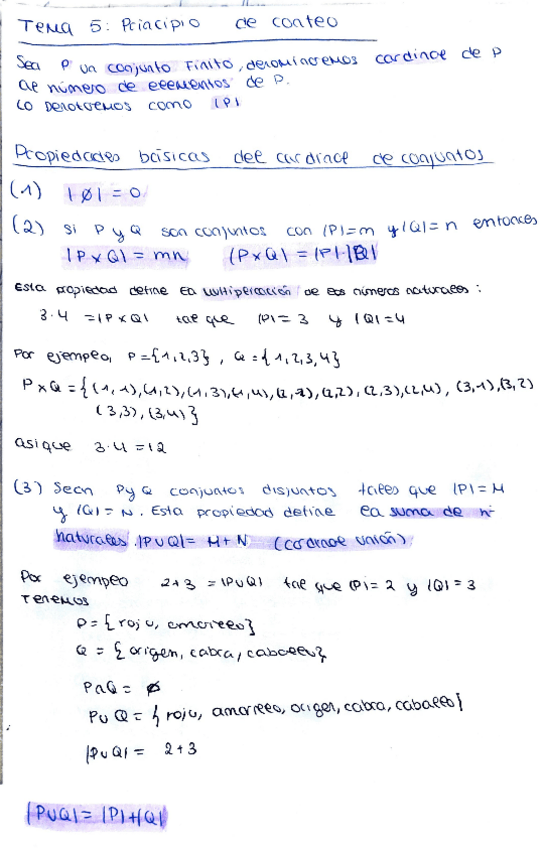 Tema 5: Principio de conteo
Sea P un conjunto finito, denominaremos cardinal de P
al número de elementos de P.
Lo denotaremos como |P|
Propiedades básicas del cardinal de conjuntos
(1) |∅| = 0
(2) Si P y Q son conjuntos con |P|=m y |Q|=n entonces
|P×Q| = mn |P×Q| = |P|·|Q|
Esta propiedad define la multiplicación de los números naturales:
3·4 = |P×Q| tal que |P|= 3 y |Q|=4
Por ejemplo, P={1,2,3}, Q={1,2,3,4}
P×Q={(1,1),(1,2),(1,3),(1,4),(2,1),(2,2),(2,3),(2,4),(3,1),(3,2)
(3,3),(3,4)}
asi que 3·4=12
(3) Sean P y Q conjuntos disjuntos tales que |P|=M
y |Q|=N. Esta propiedad define la suma de nº
naturales. |P∪Q|= M+N (cardinal unión)
Por ejemplo 2+3 = |P∪Q| tal que |P|=2 y |Q|=3
Tenemos
P={rojo, amarillo}
Q={origen, cabra, caballo}
P∩Q= ∅
P∪Q={rojo, amarillo, origen, cabra, caballo}
|P∪Q|= 2+3
|P∪Q|=|P|+|Q|